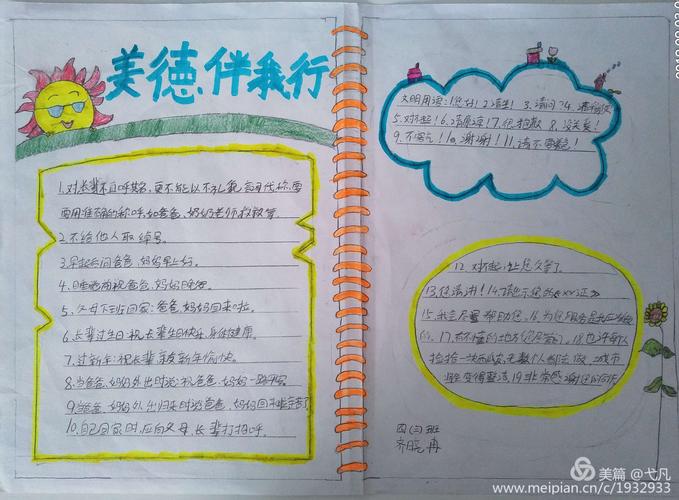 美德伴我行
1.对长辈不直呼其名,更不能以不礼貌言词代称,要
要用准确的称呼,如爸爸、妈妈老师叔叔等
2.不给他人取绰号。
3.早起后问爸爸、妈妈早上好。
4.睡觉前祝爸爸、妈妈晚安。
5.父母下班回家:爸爸、妈妈回来啦。
6.长辈过生日:祝长辈生日快乐,身体健康。
7.过新年:祝长辈、亲友新年愉快。
8.当爸爸、妈妈外出时说:祝爸爸、妈妈一路平安。
9.当爸爸、妈妈外出归来时说爸爸、妈妈回来啦辛苦了
10.自己回家时,应向父母、长辈打招呼。
文明用语:1.您好!2.请坐!3.请问?4.请稍候
5.对不起!6.请原谅!7.很抱歉 8.没关系!
9.不客气!10.谢谢!11.请不要着急!
12.对不起,让您久等了。
13.您请讲!14.请出示您的xxx证
15.我会尽量帮助您。16.为您服务是我应该做
的。17.有不懂的地方您尽管问。18.也许每人
捡拾一块
四(三)班
齐晓冉
美篇 @弋凡
www.meipian.cn/c/1932933